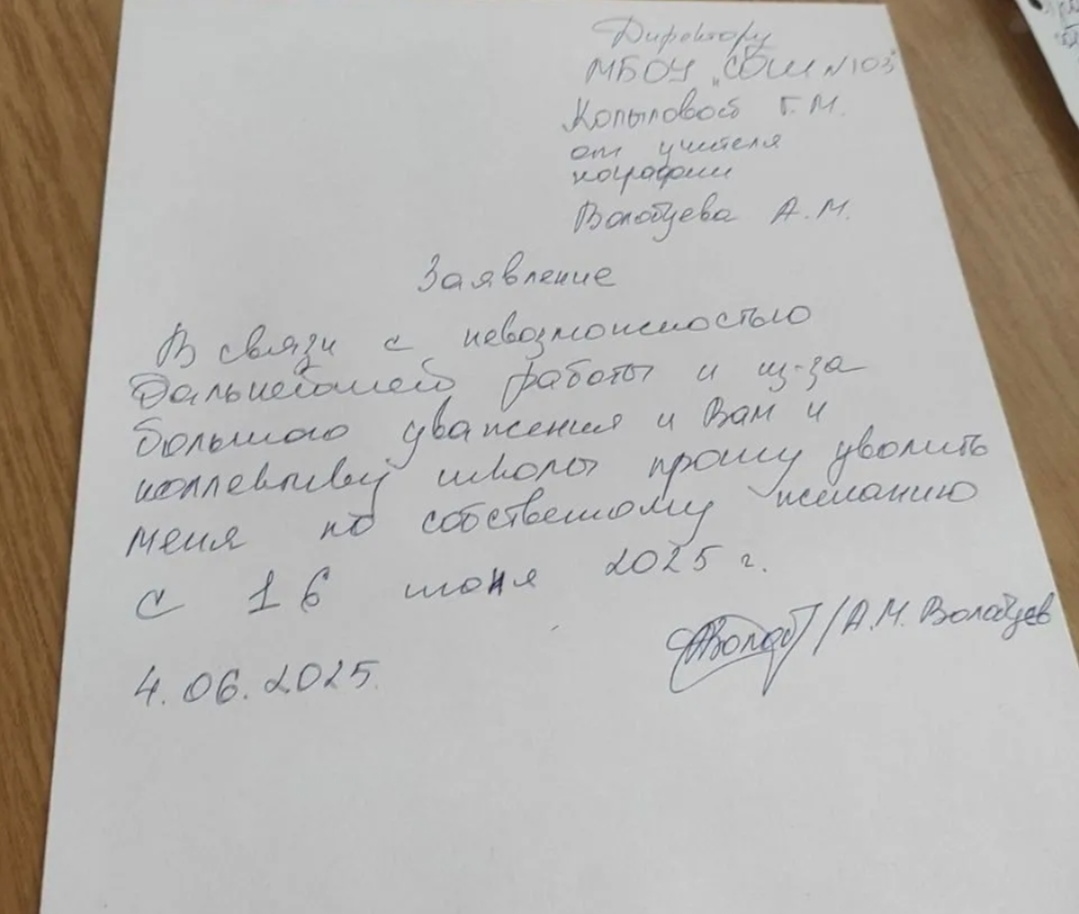 Директору
МБОУ "СОШ №103"
Копыловой Г.М.
от учителя
географии
Волобуева А.М.
Заявление
В связи с невозможностью
дальнейшей работы и из-за
большого уважения к Вам и
коллективу школы прошу уволить
меня по собственному желанию
с 16 июня 2025 г.
/А.М. Волобуев
4.06.2025.